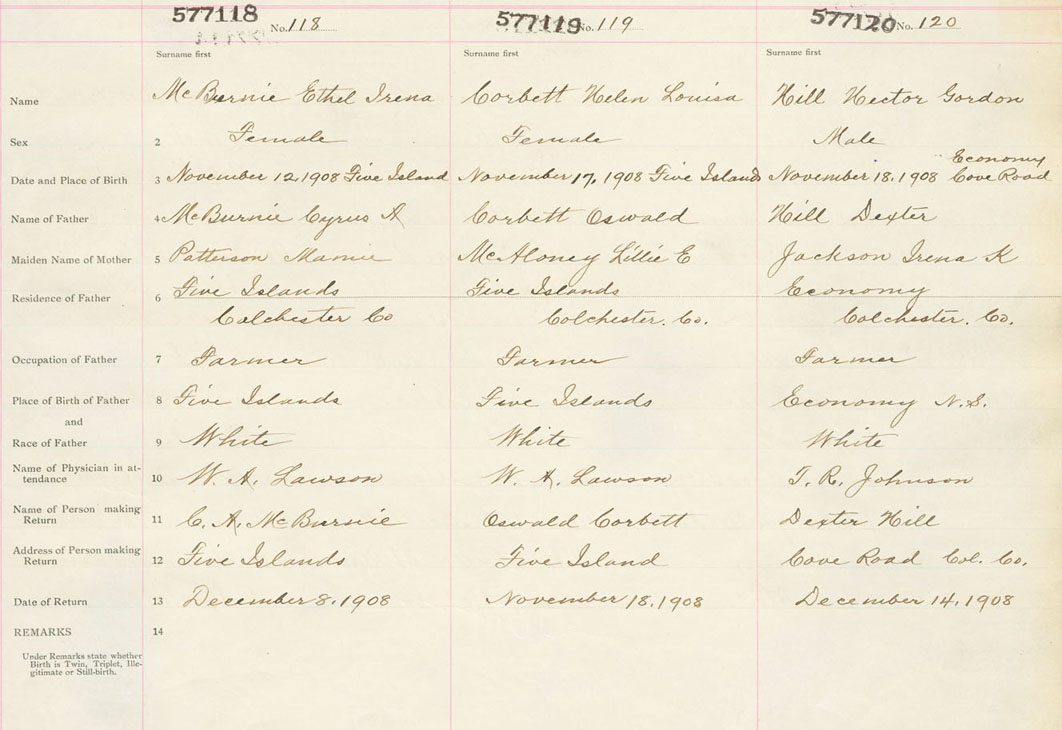 577118 No. 118 577119 No. 119 577120 No. 120
Surname first Surname first Surname first
Name McBurnie Ethel Irena Corbett Helen Louisa Hill Hector Gordon
Sex 2 Female Female Male
Economy
Date and Place of Birth 3 November 12, 1908 Five Island November 17, 1908 Five Islands November 18, 1908 Cove Road
Name of Father 4 McBurnie Cyrus A Corbett Oswald Hill Dexter
Maiden Name of Mother 5 Patterson Mamie McAloney Lillie E Jackson Irena K
Residence of Father 6 Five Islands Five Islands Economy
Colchester Co Colchester. Co. Colchester. Co.
Occupation of Father 7 Farmer Farmer Farmer
Place of Birth of Father 8 Five Islands Five Islands Economy N.S.
and
Race of Father 9 White White White
Name of Physician in at-
tendance 10 W. A. Lawson W. A. Lawson T. R. Johnson
Name of Person making
Return 11 C. A. McBurnie Oswald Corbett Dexter Hill
Address of Person making
Return 12 Five Islands Five Island Cove Road Col. Co.
Date of Return 13 December 8, 1908 November 18, 1908 December 14, 1908
REMARKS 14
Under Remarks state whether
Birth is Twin, Triplet, Ille-
gitimate or Still-birth.